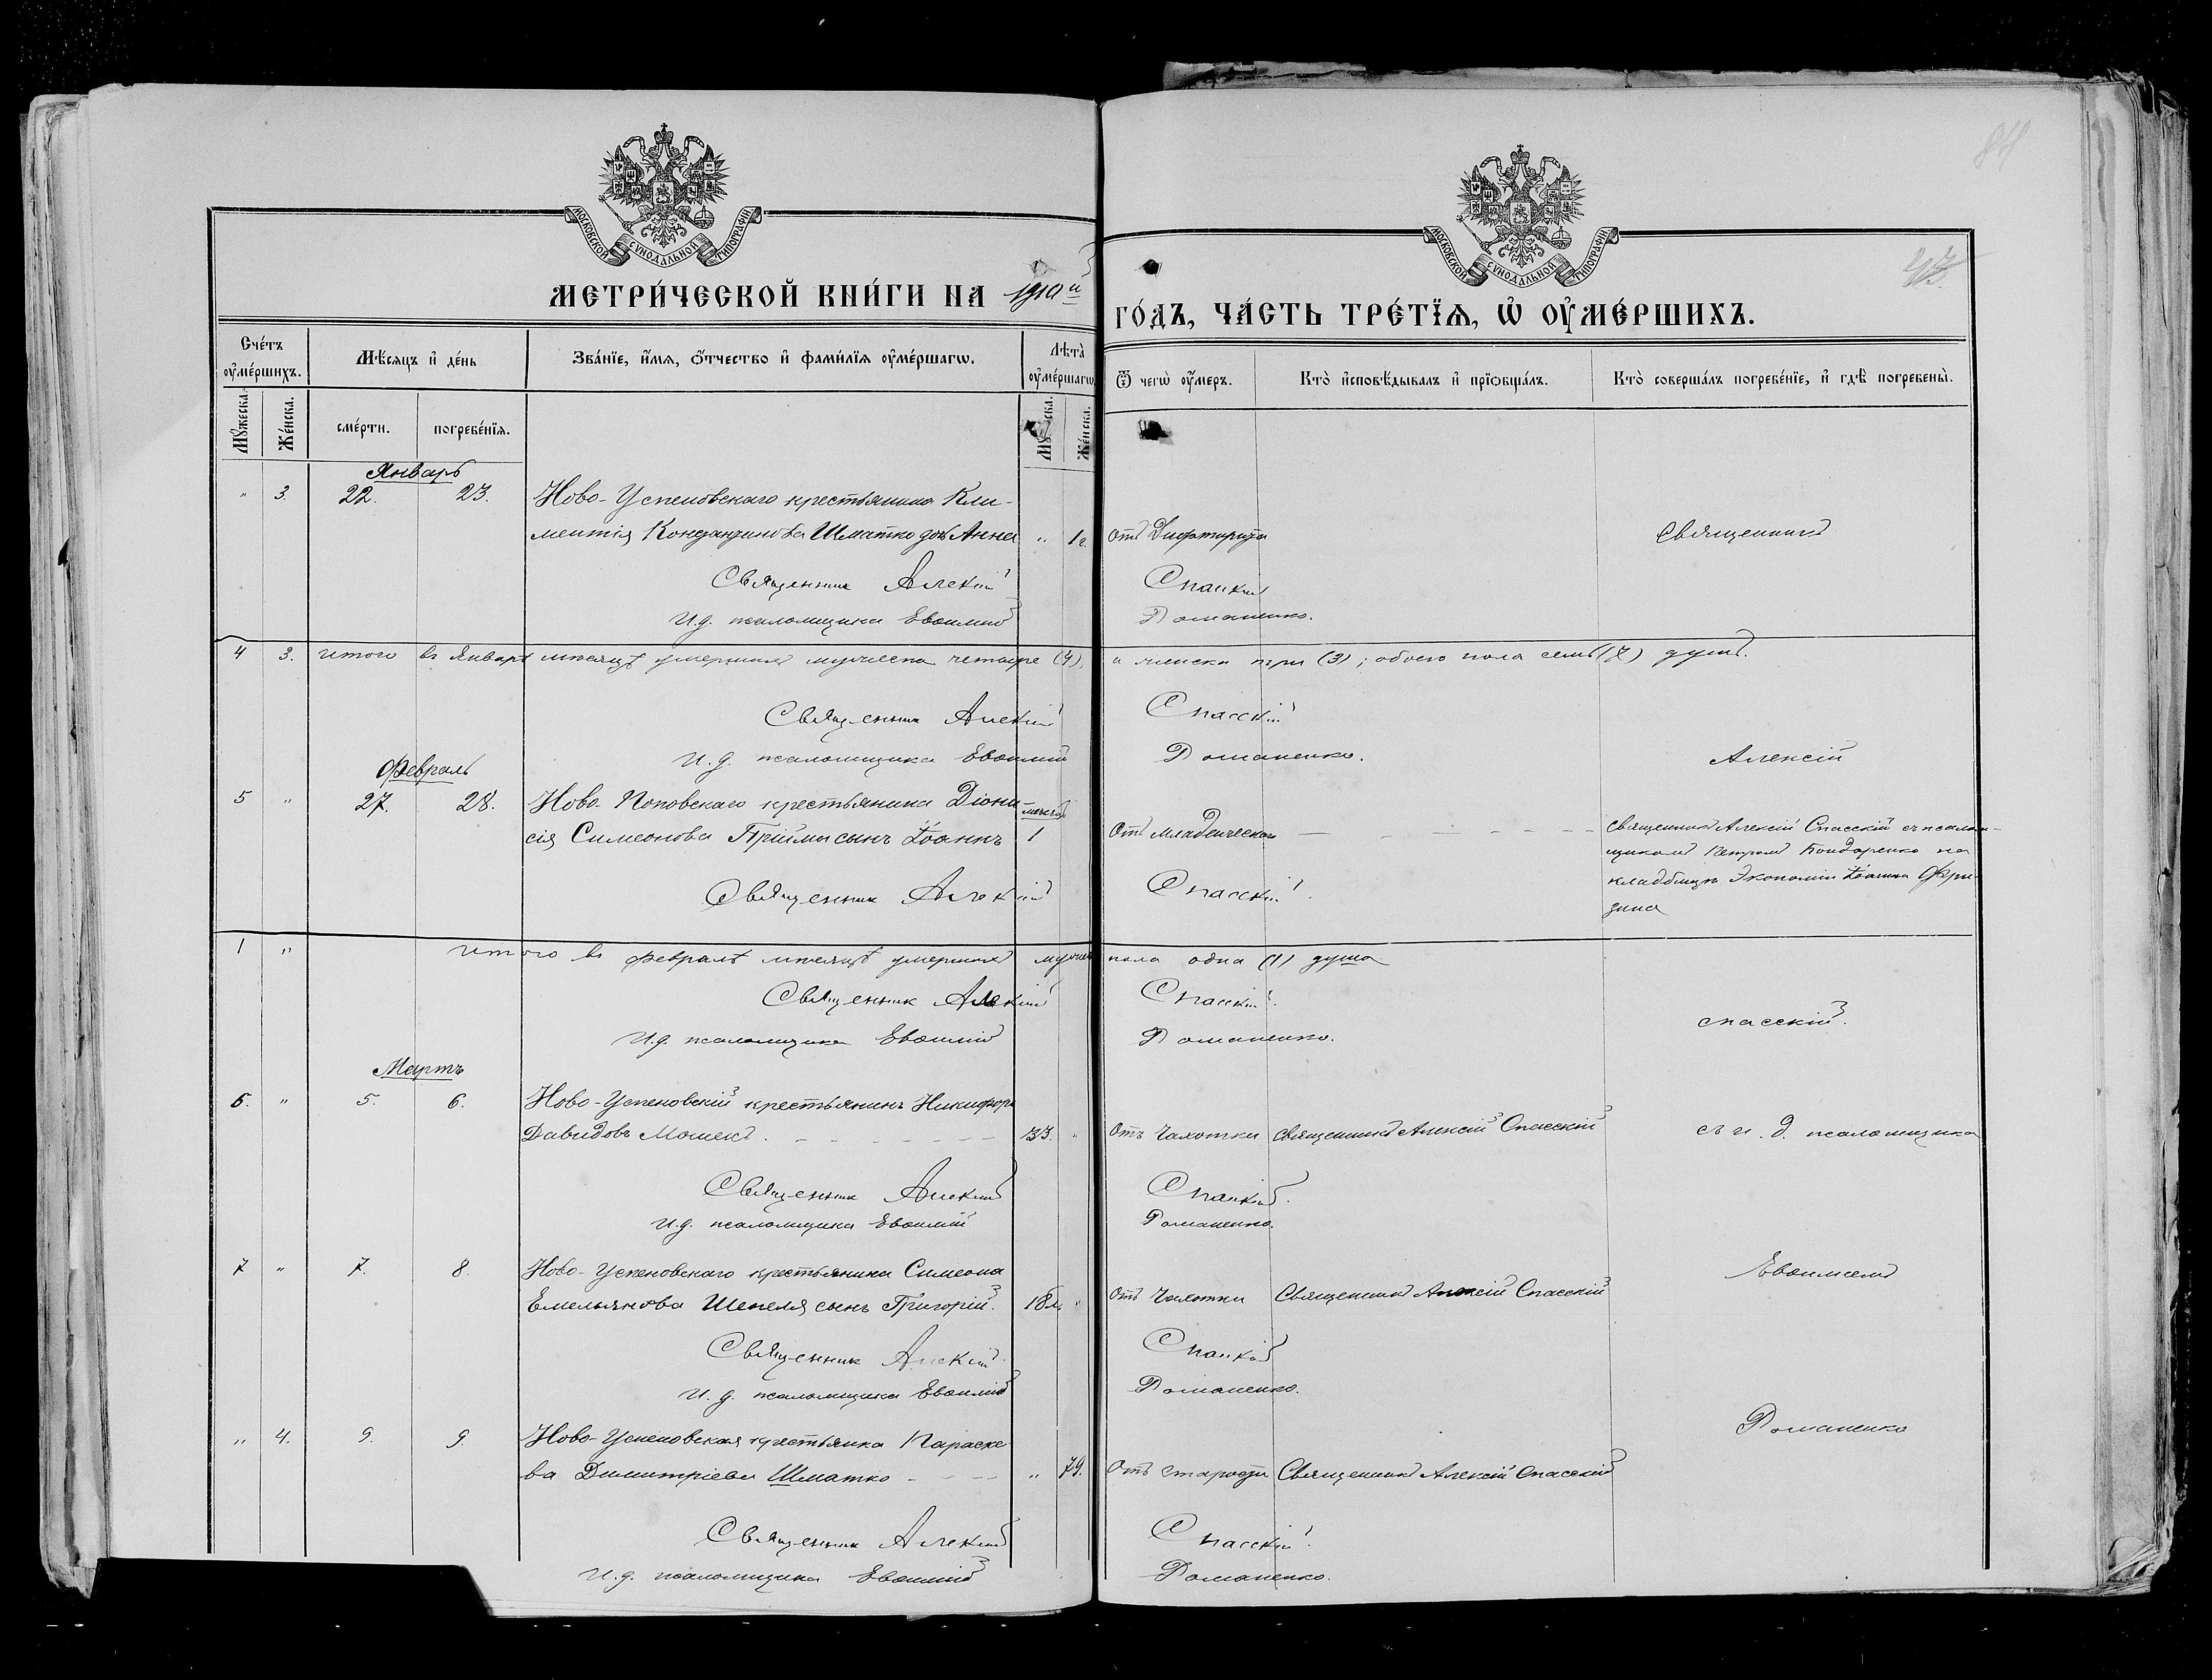 84
МОСКОВСКОЙ СѴНОДАЛЬНОЙ ТИПОГРАФІИ
МОСКОВСКОЙ СѴНОДАЛЬНОЙ ТИПОГРАФІИ
МЕТРИ́ЧЕСКОЙ КНИ́ГИ НА 1910й
ГО́ДЪ, ЧА́СТЬ ТРЕ́ТЇѦ, Ѡ҆ ОУ҆МЕ́РШИХЪ.
Сче́тъ оу҆ме́ршихъ.
Мѣ́сяцъ и҆ де́нь
Зва́нїе, и҆́мя, ѻ҆́тчество и҆ фами́лїя оу҆ме́ршагѡ.
Лѣта̀ оу҆ме́ршагѡ
Ѿ чегѡ̀ оу҆́меръ.
Кто̀ и҆сповѣ́дывалъ и҆ прїѻбща́лъ.
Кто̀ соверша́лъ погребе́нїе, и҆ гдѣ̀ погребены̀.
Мꙋ́жеска.
Же́нска.
сме́рти.
погребе́нїя.
Мꙋ́жеска.
Же́нска.
Январь
" 3. 22. 23. Ново-Успеновскаго крестьянина Кли-
ментія Шматко дочь Анна " 1 г. Отъ Дифтирита Священникъ
Священникъ Алексій Спасскій
И.д. псаломщика Евѳимій Романенко.
4 3. итого въ Январѣ мѣсяцѣ умершихъ мужеска четыре (4) и женска три (3); обоего пола семь (7) душъ.
Священникъ Алексій Спасскій
И.д. псаломщика Евѳимій Романенко. Алексій
Февраль
5 " 27. 28. Ново-Поповскаго крестьянина Діони-
сія Симеонова Прійма сынъ Іоаннъ 1 Отъ младенческой Священникъ Алексій Спасскій съ псалом-
щикомъ Петромъ Бондаренко на
кладбищѣ Экономіи Іоанна
Священникъ Алексій Спасскій.
1 " итого въ Февралѣ мѣсяцѣ умершихъ пола одна (1) душа
Священникъ Алексій Спасскій. Спасскій.
И.д. псаломщика Евѳимій Романенко.
Мартъ
6. " 5. 6. Ново-Успеновскій крестьянинъ Никифоръ
Давидовъ 33. " Отъ Чахотки Священникъ Алексій Спасскій съ и. д. псаломщика
Священникъ Алексій Спасскій.
И.д. псаломщика Евѳимій Романенко.
7 " 7. 8. Ново-Успеновскаго крестьянина Симеона
Емельянова Шепеля сынъ Григорій. 18 л. " Отъ Чахотки Священникъ Алексій Спасскій Евѳиміемъ
Священникъ Алексій Спасскій
И.д. псаломщика Евѳимій Романенко.
" 4. 9. 9. Ново-Успеновская крестьянка Параске-
ва Димитріева Шматко " 79. Отъ старости Священникъ Алексій Спасскій Романенко
Священникъ Алексій Спасскій.
И.д. псаломщика Евѳимій Романенко.